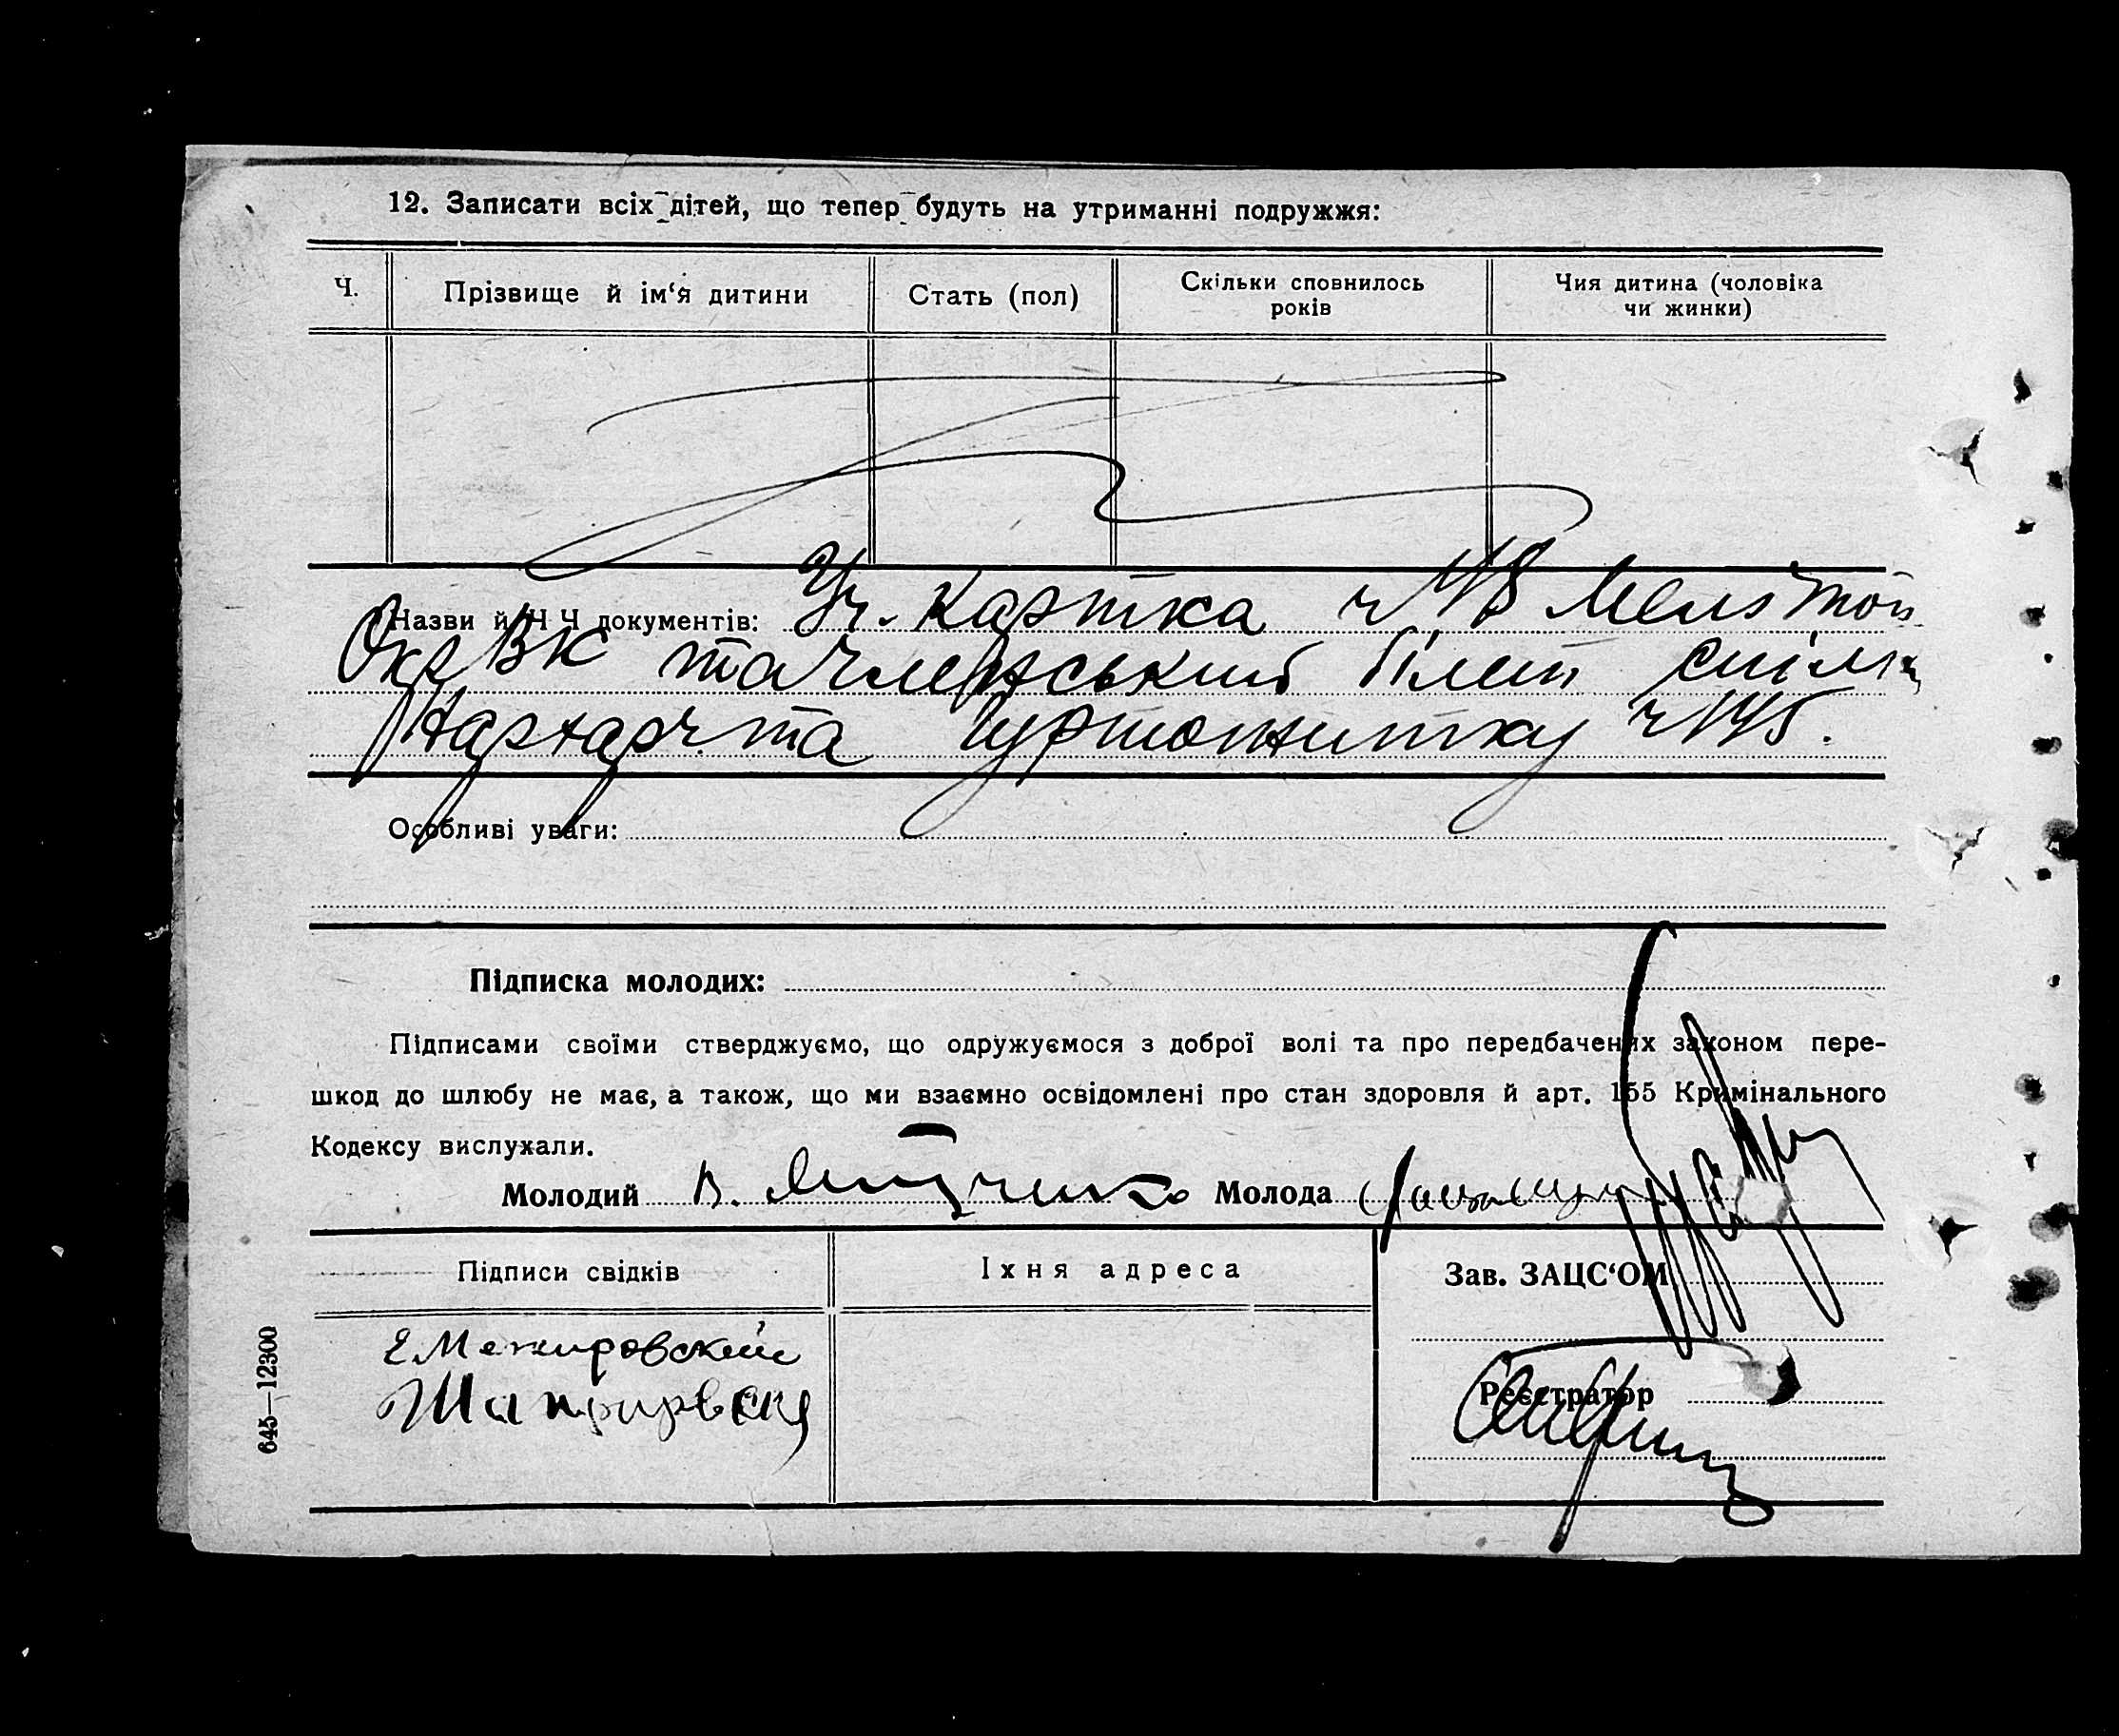 12. Записати всіх дітей, що тепер будуть на утриманні подружжя:
Ч.
Прізвище й ім‘я дитини
Стать (пол)
Скільки сповнилось
років
Чия дитина (чоловіка
чи жинки)
Назви й Ч Ч документів: Уч. картка ч
ОкрВК та членський білет спілки
Нархарч та гуртожитку ч
Особливі уваги:
Підписка молодих:
Підписами своїми стверджуємо, що одружуємося з доброї волі та про передбачених законом пере-
шкод до шлюбу не має, а також, що ми взаємно освідомлені про стан здоровля й арт. 155 Кримінального
Кодексу вислухали.
Молодий В. Молода
Підписи свідків
Їхня адреса
Зав. ЗАЦС‘ОМ
Е. Межировский
Реєстратор
645—12300